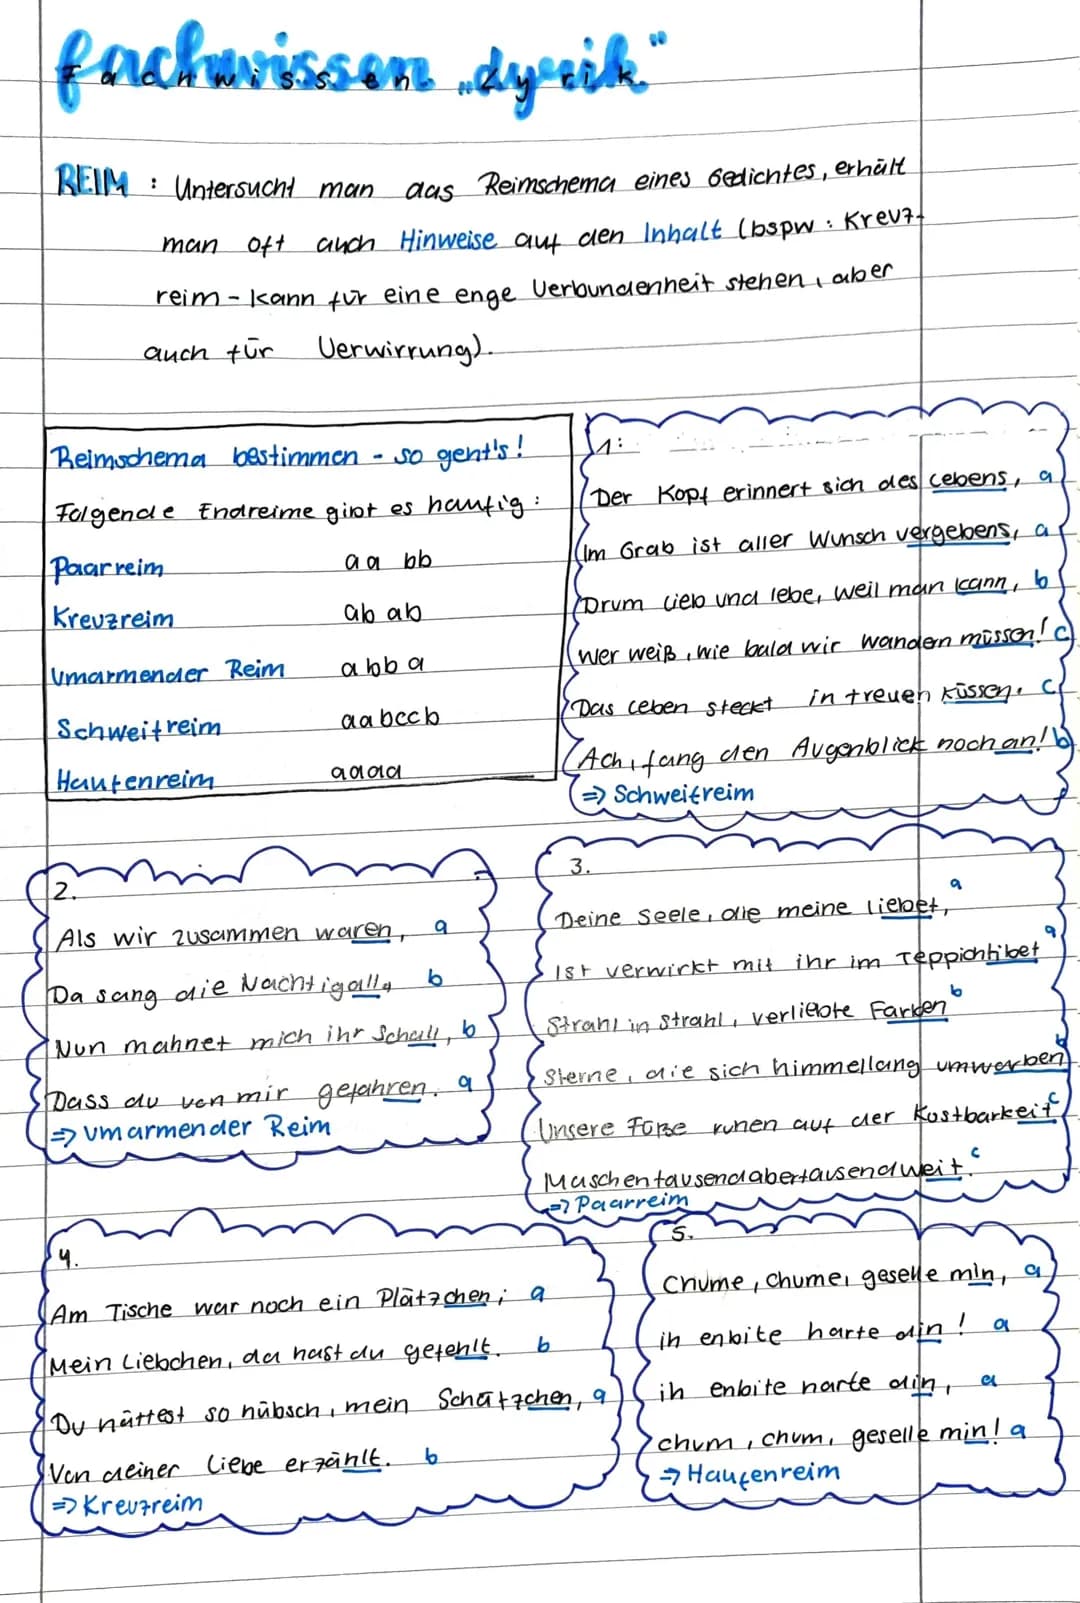 Fachwissen „Lyrik"
REIM : Untersucht man das Reimschema eines Gedichtes, erhält
man oft auch Hinweise auf den Inhalt (bspw : Kreuz-
reim - kann für eine enge Verbundenheit stehen, aber
auch für Verwirrung).
Reimschema bestimmen - so geht's!
Folgende Endreime gibt es häufig :
Paarreim aa bb
Kreuzreim ab ab
Umarmender Reim abba
Schweifreim aabccb
Haufenreim aaaa
1:
Der Kopf erinnert sich des Lebens, a
Im Grab ist aller Wunsch vergebens, a
Drum lieb und lebe, weil man kann, b
Wer weiß, wie bald wir wandern müssen! c
Das Leben steckt in treuen Küssen. c
Ach, fang den Augenblick noch an! b
=> Schweifreim
2.
Als wir zusammen waren, a
Da sang die Nachtigall, b
Nun mahnet mich ihr Schall, b
Dass du von mir gefahren. a
=> umarmender Reim
3.
Deine Seele, die meine liebet, a
Ist verwirkt mit ihr im Teppichtibet a
Strahl in Strahl, verliebte Farben b
Sterne, die sich himmellang umwerben b
Unsere Füße ruhen auf der Kostbarkeit c
Maschentausendabertausendweit. c
=> Paarreim
4.
Am Tische war noch ein Plätzchen; a
Mein Liebchen, da hast du gefehlt. b
Du hättest so hübsch, mein Schätzchen, a
Von deiner Liebe erzählt. b
=> Kreuzreim
5.
Chume, chume, geselle min, a
ih enbite harte din! a
ih enbite harte din, a
chum, chum, geselle min! a
=> Haufenreim